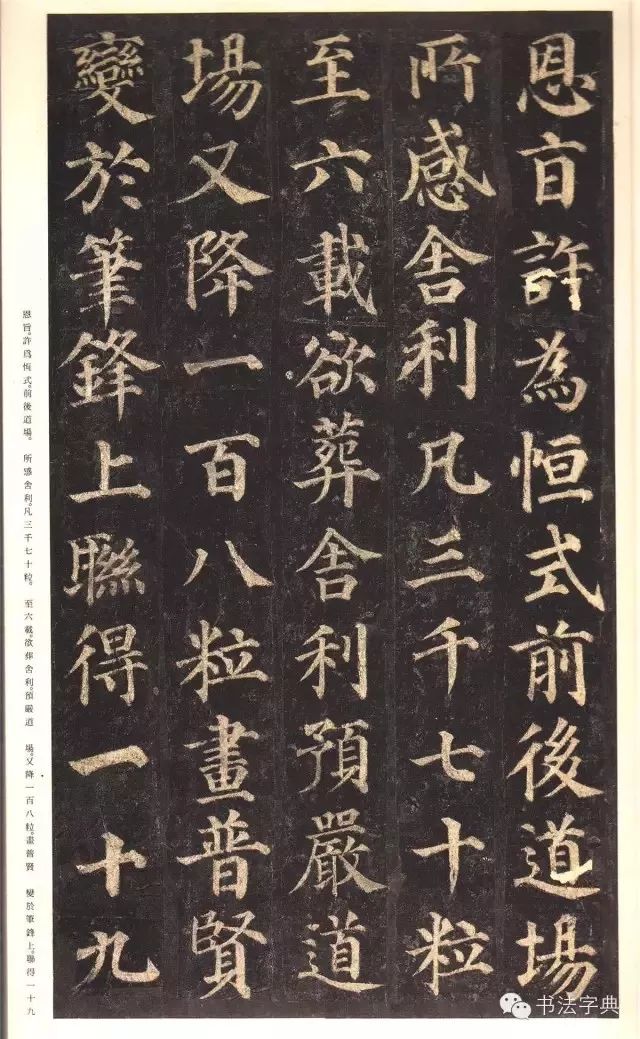 恩旨許為恒式前後道場
所感舍利凡三千七十粒
至六載欲葬舍利預嚴道
場又降一百八粒畫普賢
變於筆鋒上聯得一十九
恩旨。許爲恆式。前後道場。 所感舍利。凡三千七十粒。 至六載。欲葬舍利。預嚴道 場。又降一百八粒。畫普賢 變於筆鋒上。聯得一十九
书法字典